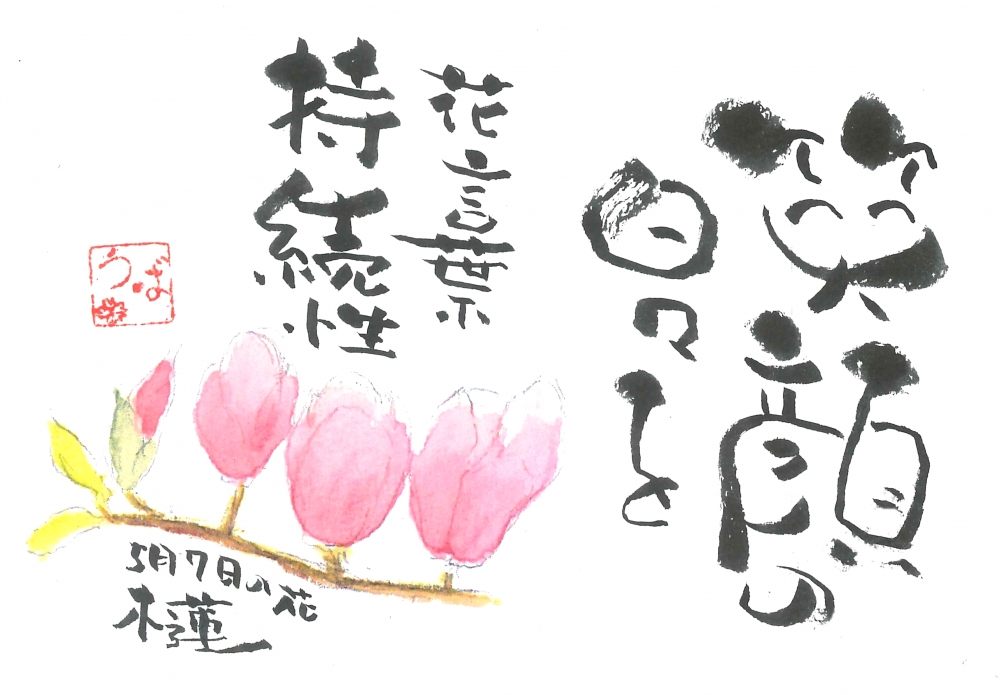 笑顔の
日々を
花言葉
持続性
うば
5月7日の花
木蓮